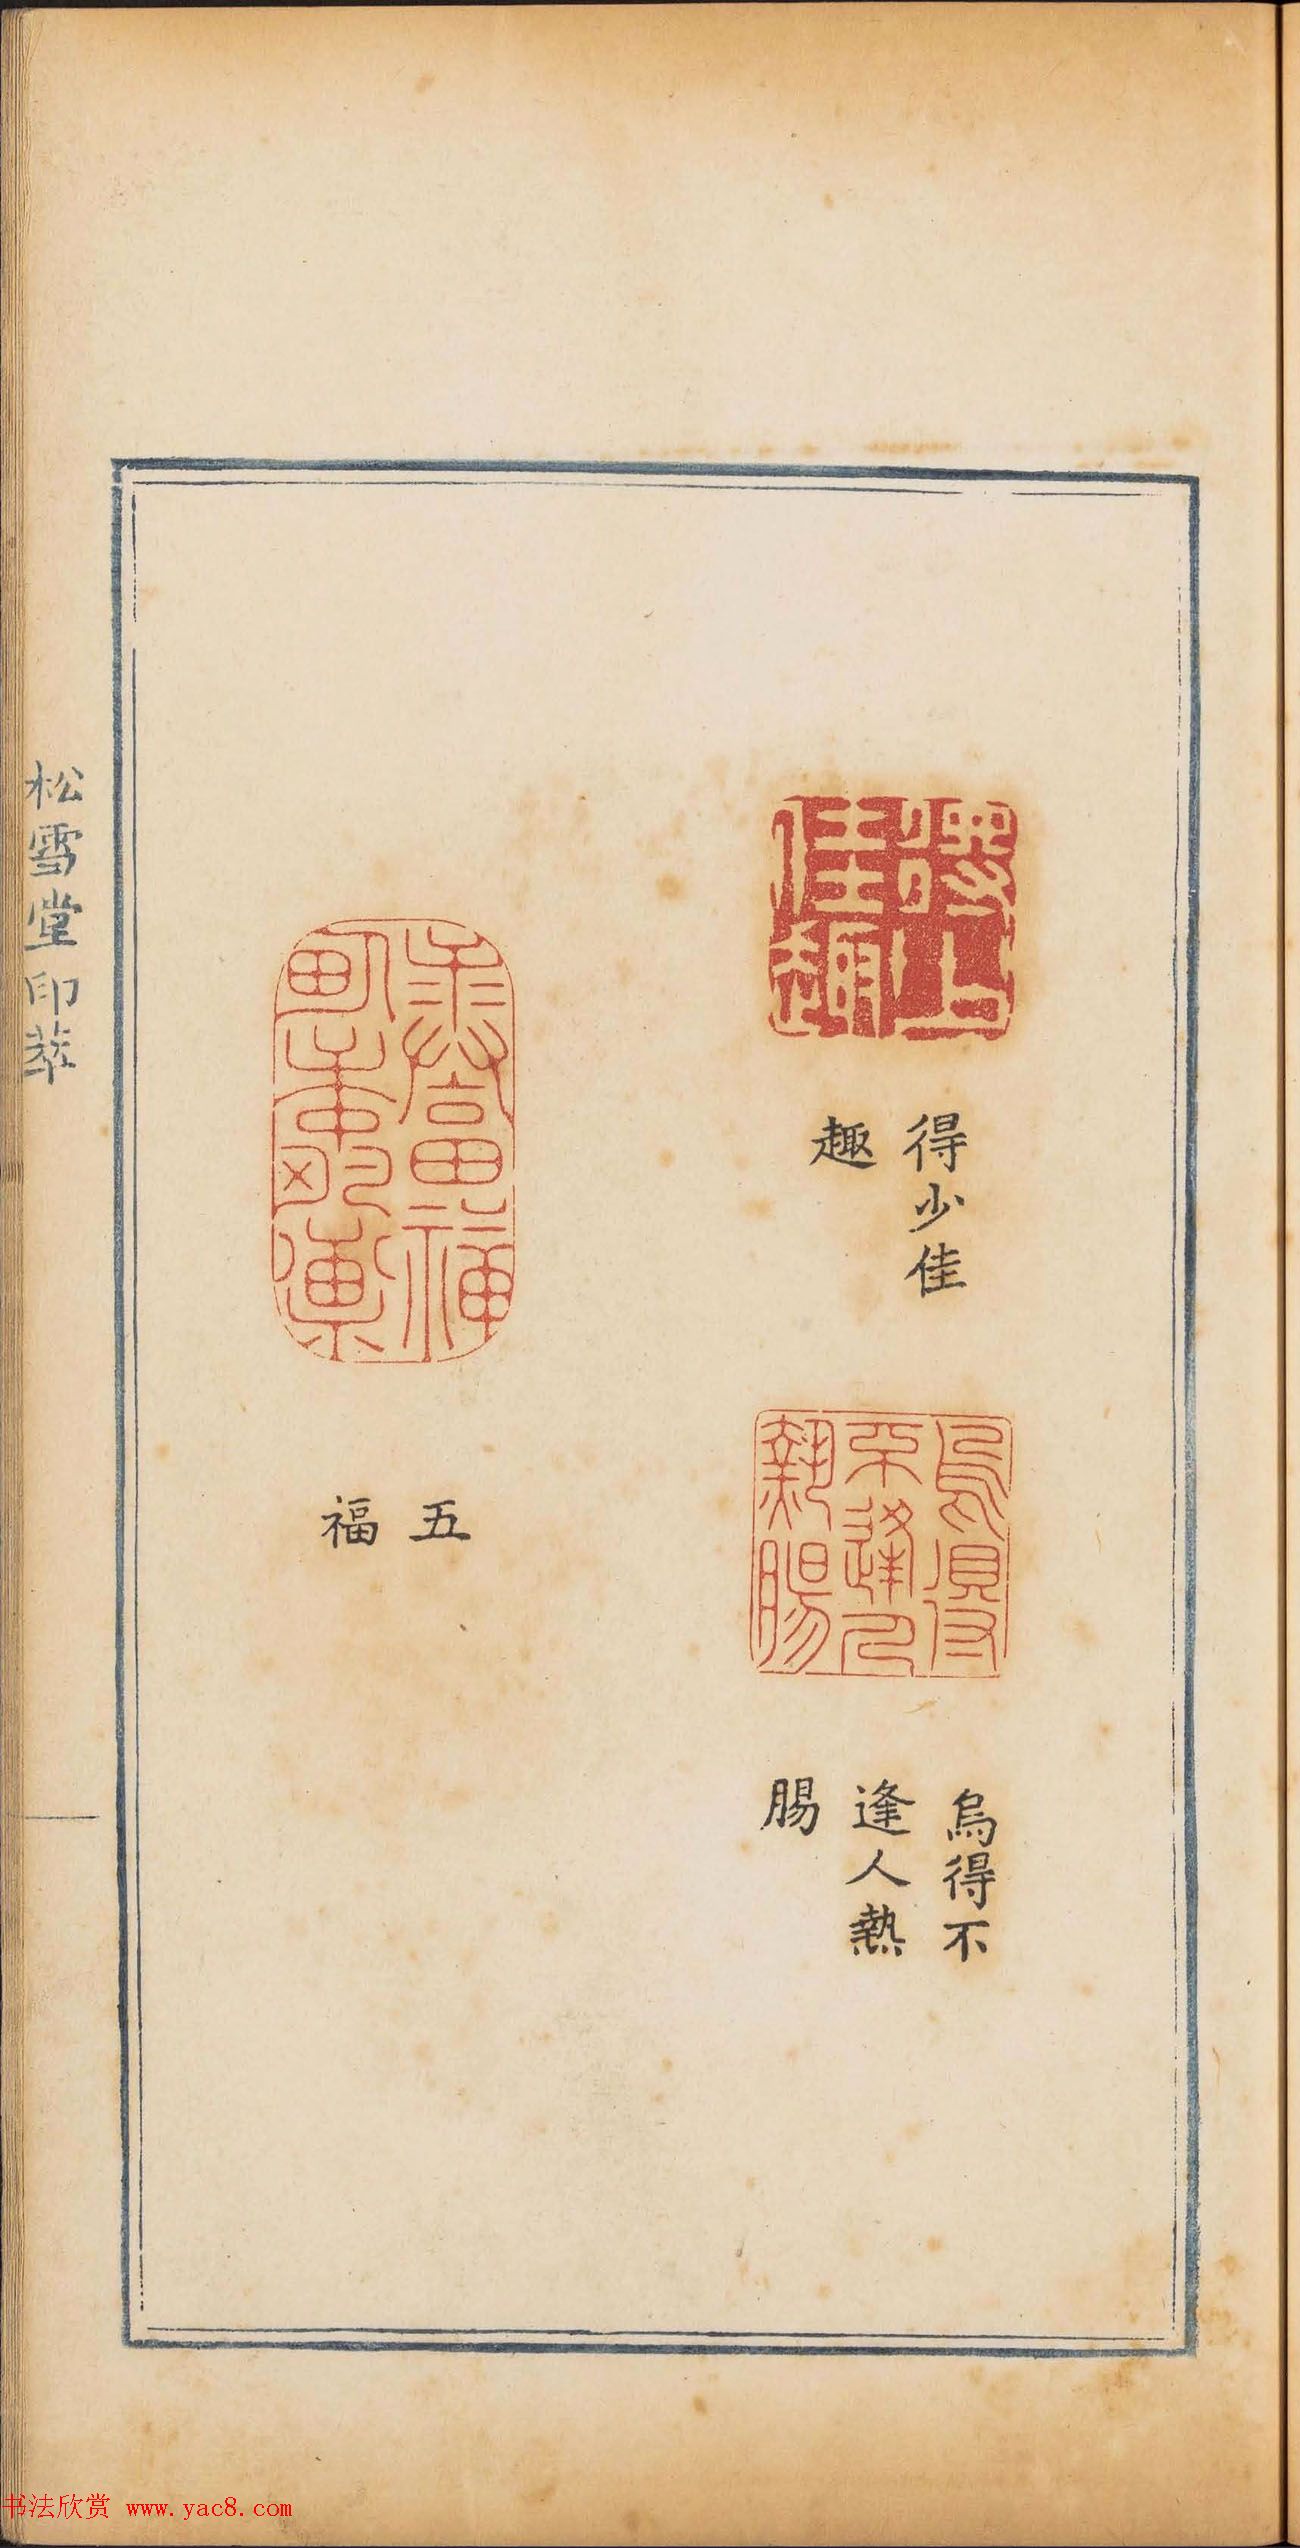 得少佳
趣
烏得不
逢人熱
腸
五
福
松雪堂印萃
书法欣赏 www.yac8.com